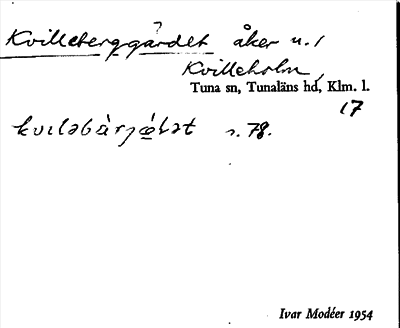 ?
Kvilleberggärdet åker u. /
Kvilleholm,
Tuna sn, Tunaläns hd, Klm. l.
17
s. 78.
Ivar Modéer 1954